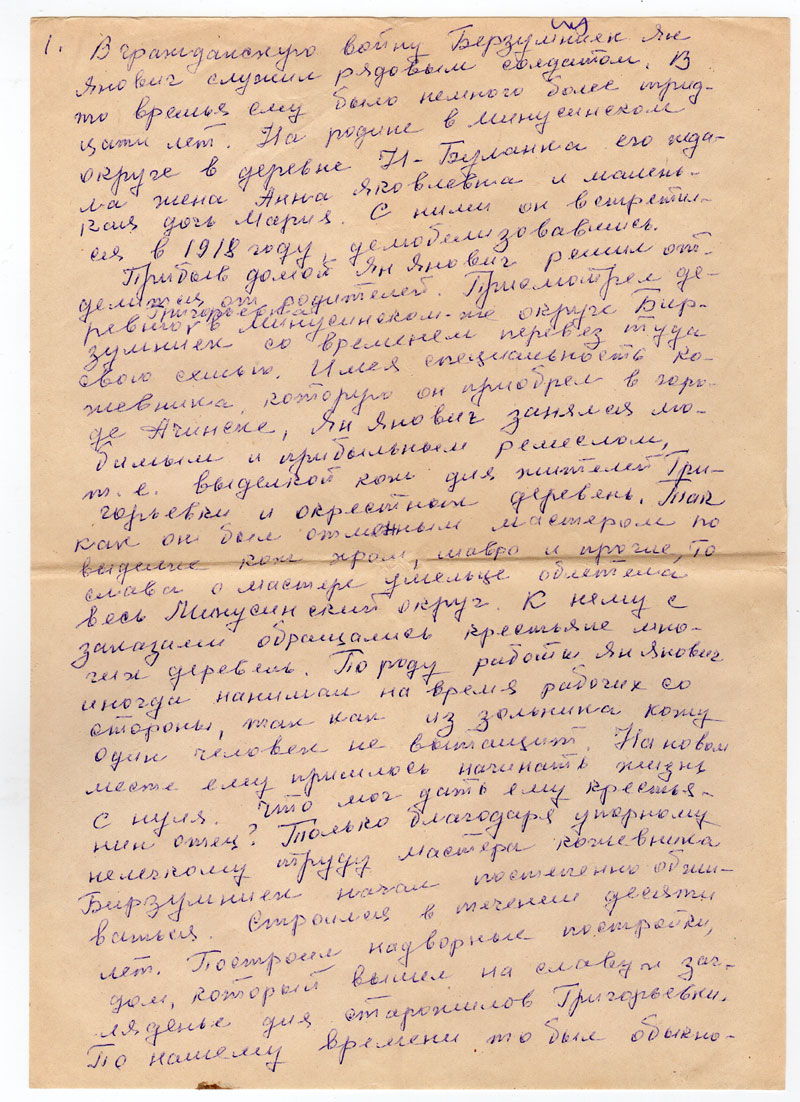 1. В гражданскую войну Берзумниек Ян
Янович служил рядовым солдатом. В
то время ему было немного более трид-
цати лет. На родине в Минусинском
округе в деревне Н-Буланка его жда-
ла жена Анна Яковлевна и малень-
кая дочь Мария. С ними он встретил-
ся в 1918 году, демобелизовавшись.
Прибыв домой Ян Янович решил от-
делиться от родителей. Присмотрел де-
Григорьевка
ревню в Минусинском-же округе Бир-
зумниек со временем перевез туда
свою семью. Имея специальность ко-
жевника, которую он приобрел в горо-
де Ачинске, Ян Янович занялся лю-
бимым и прибыльным ремеслом,
т.е. выделкой кож для жителей Гри-
горьевки и окрестных деревень. Так
как он был отменным мастером по
выделке кож хром, шавро и прочие, то
слава о мастере умельце облетела
весь Минусинский округ. К нему с
заказами обращались крестьяне мно-
гих деревень. По роду работы Ян Янович
иногда нанимал на время рабочих со
стороны, так как из зольника кожу
один человек не вытащит. На новом
месте ему пришлось начинать жизнь
с нуля. Что мог дать ему крестья-
нин отец? Только благодаря упорному
нелегкому труду мастера кожевника
Бирзумниек начал постепенно обжи-
ваться. Строился в течении десяти
лет. Построил надворные постройки,
дом, который вышел на славу и заг-
ляденье для старожилов Григорьевки.
По нашему времени то был обыкно-